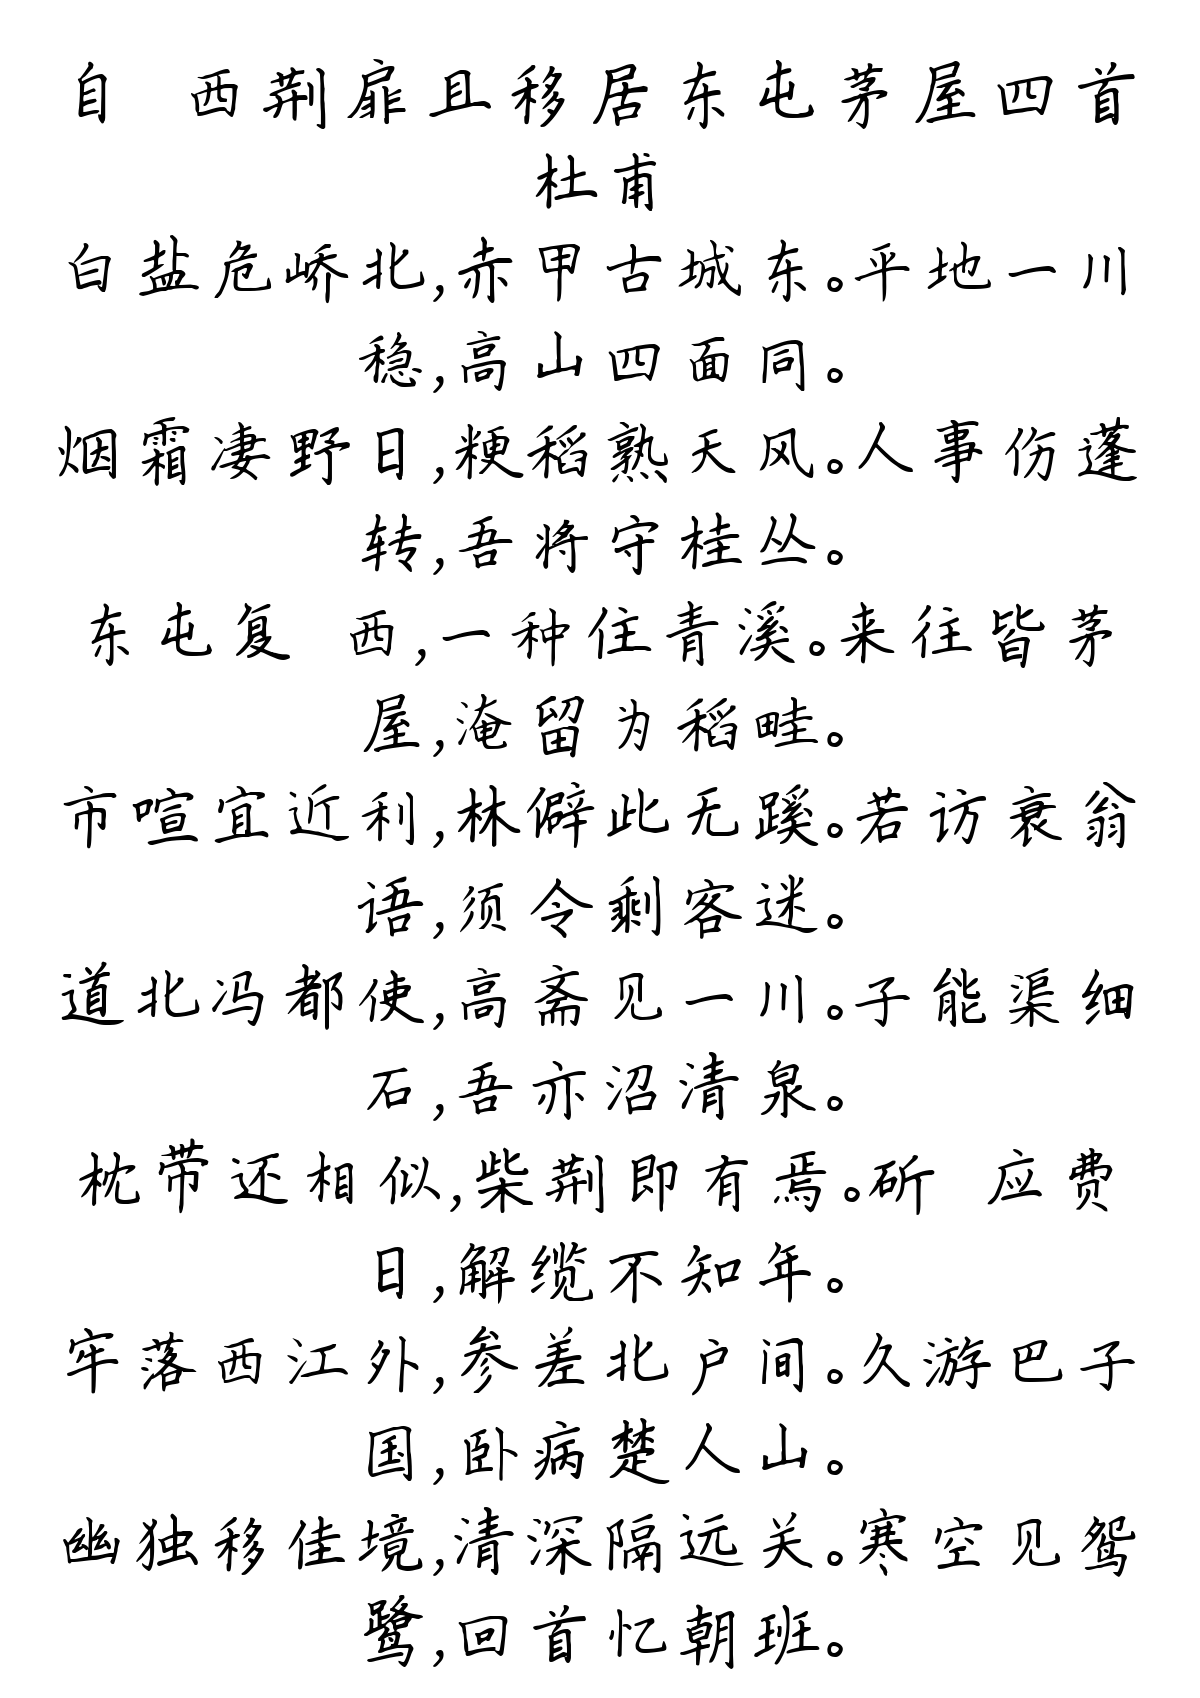 自 西荆扉且移居东屯茅屋四首
杜甫
白盐危峤北,赤甲古城东。平地一川
稳,高山四面同。
烟霜凄野日,粳稻熟天风。人事伤蓬
转,吾将守桂丛。
东屯复 西,一种住青溪。来往皆茅
屋,淹留为稻畦。
市喧宜近利,林僻此无蹊。若访衰翁
语,须令剩客迷。
道北冯都使,高斋见一川。子能渠细
石,吾亦沼清泉。
枕带还相似,柴荆即有焉。斫 应费
日,解缆不知年。
牢落西江外,参差北户间。久游巴子
国,卧病楚人山。
幽独移佳境,清深隔远关。寒空见鸳
鹭,回首忆朝班。